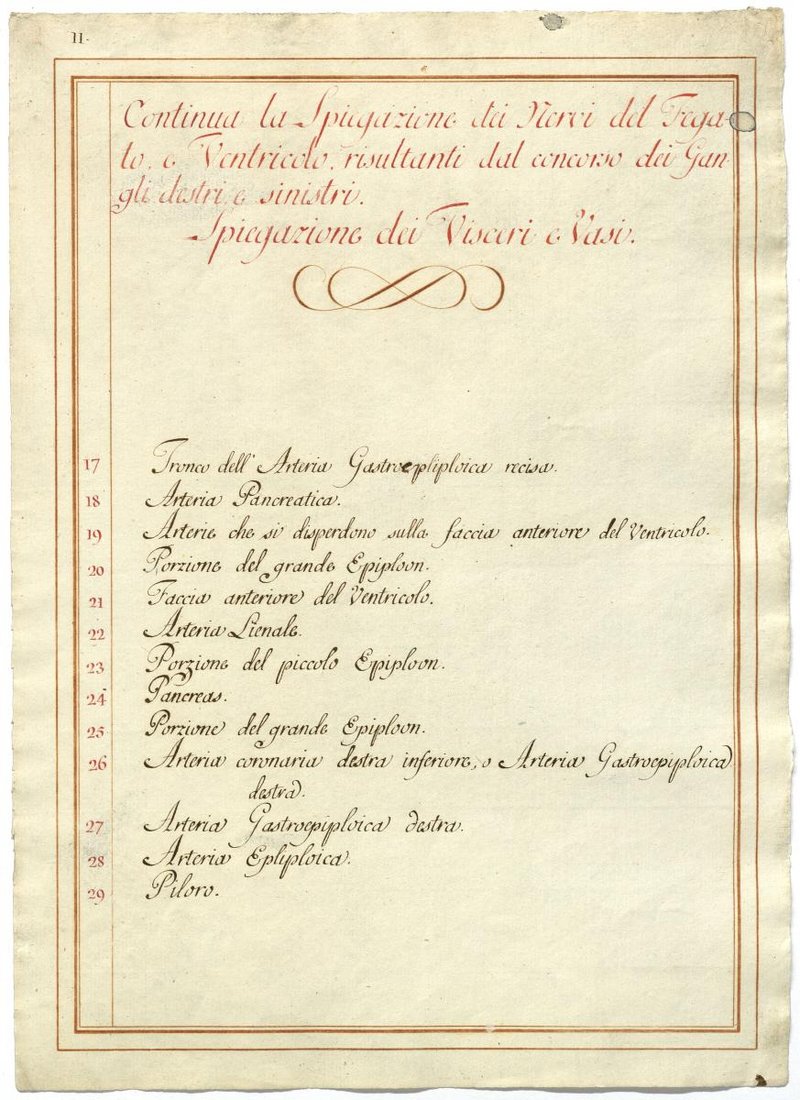 II.
Continua la Spiegazione dei Nervi del Fega-
to, e Ventricolo, risultanti dal concorso dei Gan-
gli destri, e sinistri.
Spiegazione dei Visceri e Vasi.
17 Tronco dell' Arteria Gastroepliploica recisa.
18 Arteria Pancreatica.
19 Arterie che si disperdono sulla faccia anteriore del Ventricolo.
20 Porzione del grande Epiploon.
21 Faccia anteriore del Ventricolo.
22 Arteria Lienale.
23 Porzione del piccolo Epiploon.
24 Pancreas.
25 Porzione del grande Epiploon.
26 Arteria coronaria destra inferiore, o Arteria Gastroepiploica
destra.
27 Arteria Gastroepiploica destra.
28 Arteria Epliploica.
29 Piloro.